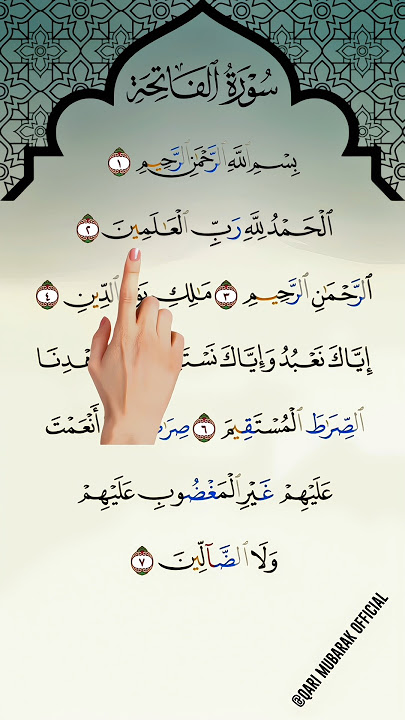 سُوْرَةُ الْفَاتِحَة
بِسْمِ اللَّهِ الرَّحْمَٰنِ الرَّحِيمِ ١
ٱلْحَمْدُ لِلَّهِ رَبِّ ٱلْعَـٰلَمِينَ ٢
ٱلرَّحْمَـٰنِ ٱلرَّحِيمِ ٣ مَـٰلِكِ ٱلدِّينِ ٤
إِيَّاكَ نَعْبُدُ وَإِيَّاكَ
ٱلصِّرَٰطَ ٱلْمُسْتَقِيمَ ٦ أَنْعَمْتَ
عَلَيْهِمْ غَيْرِ ٱلْمَغْضُوبِ عَلَيْهِمْ
وَلَا ٱلضَّآلِّينَ ٧
@QARI MUBARAK OFFICIAL